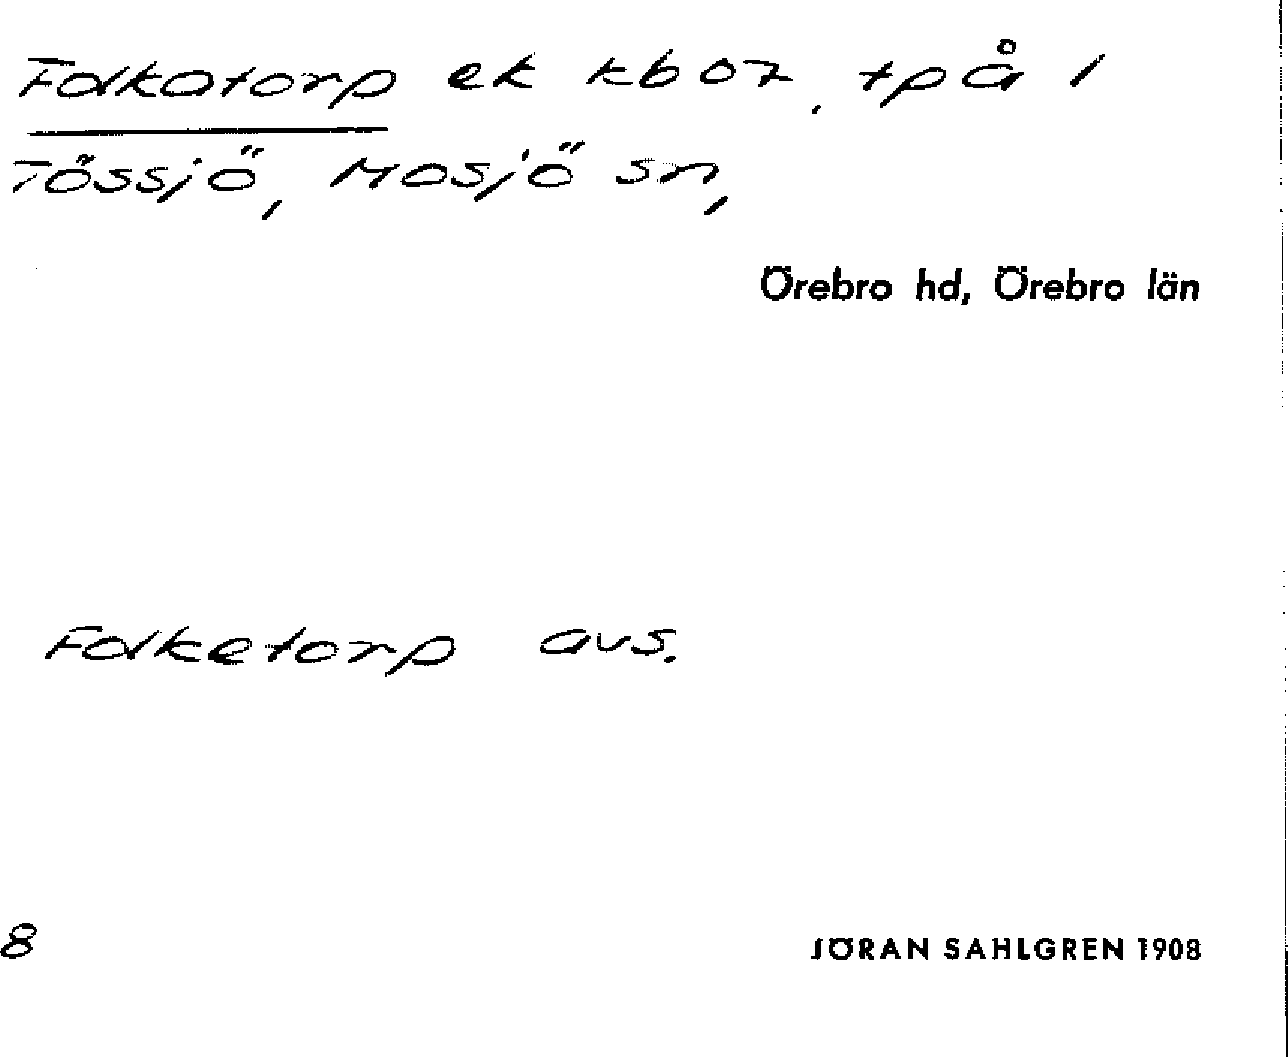 Folkatorp ek kb 07. tpå 1
Tössjö, Mosjö sn,
Örebro hd, Örebro län
Folketorp avs.
8
JÖRAN SAHLGREN 1908